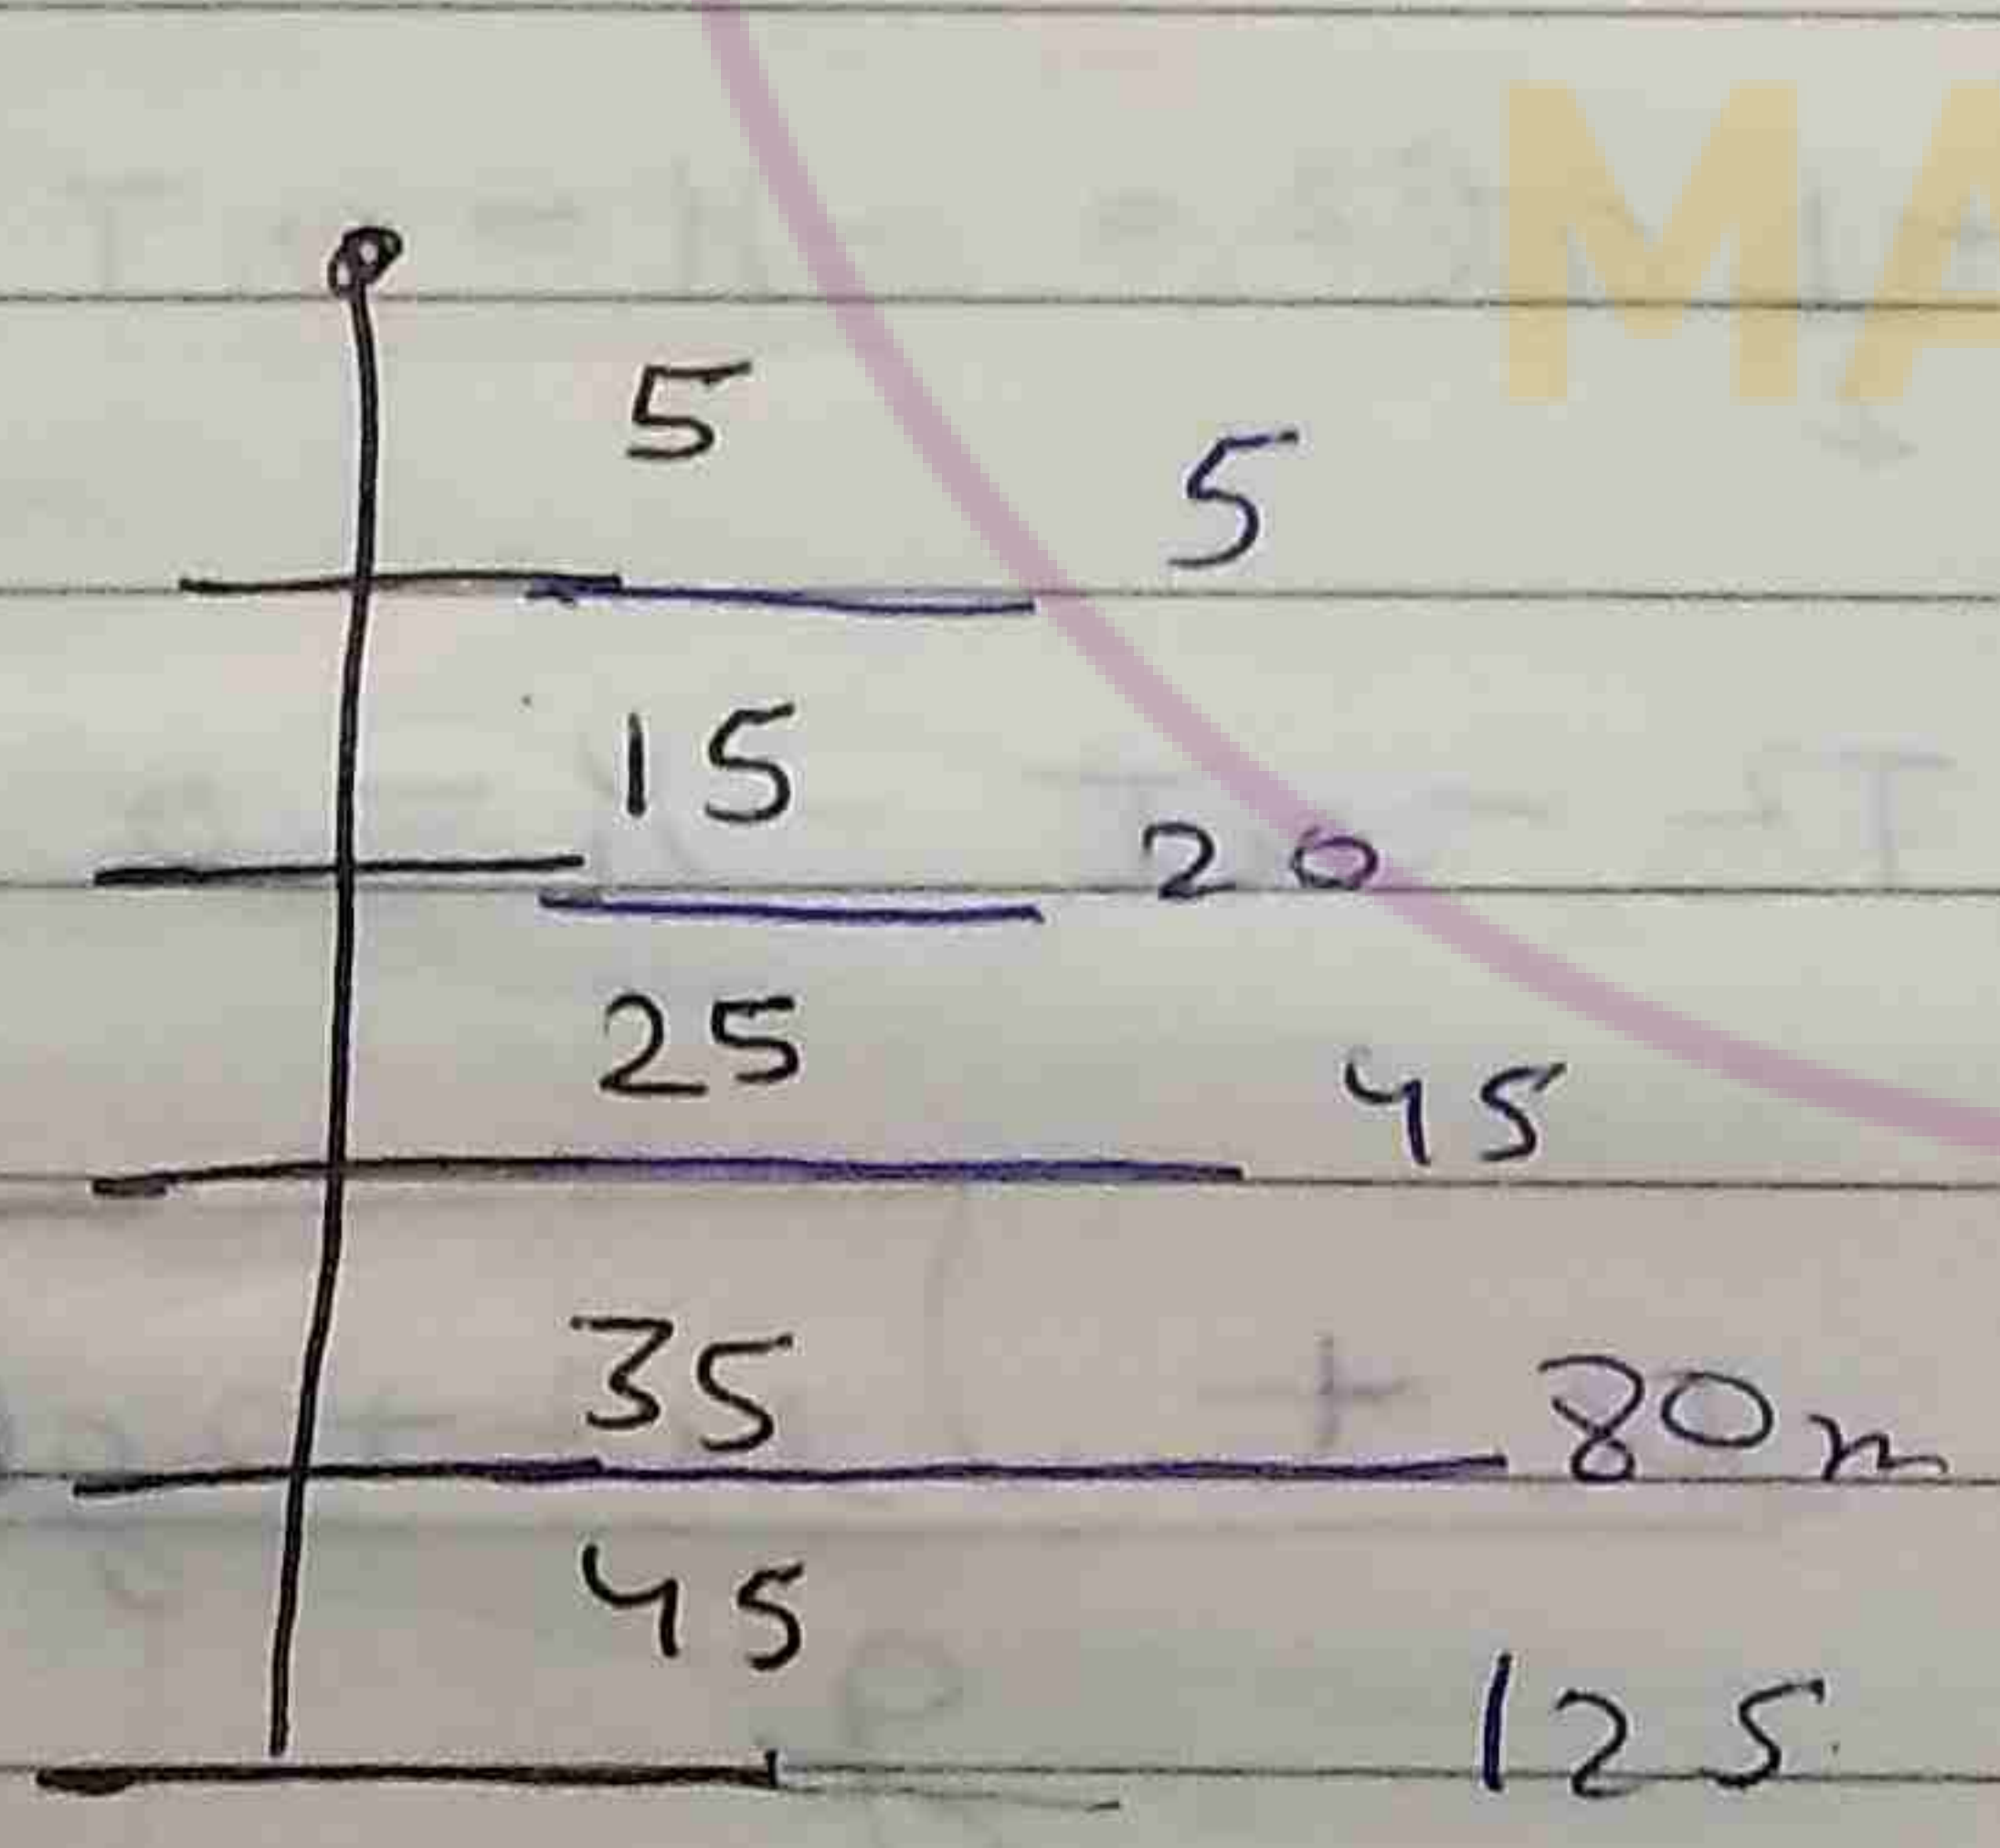 5
5
15
20
25
45
35
80m
45
125
MA